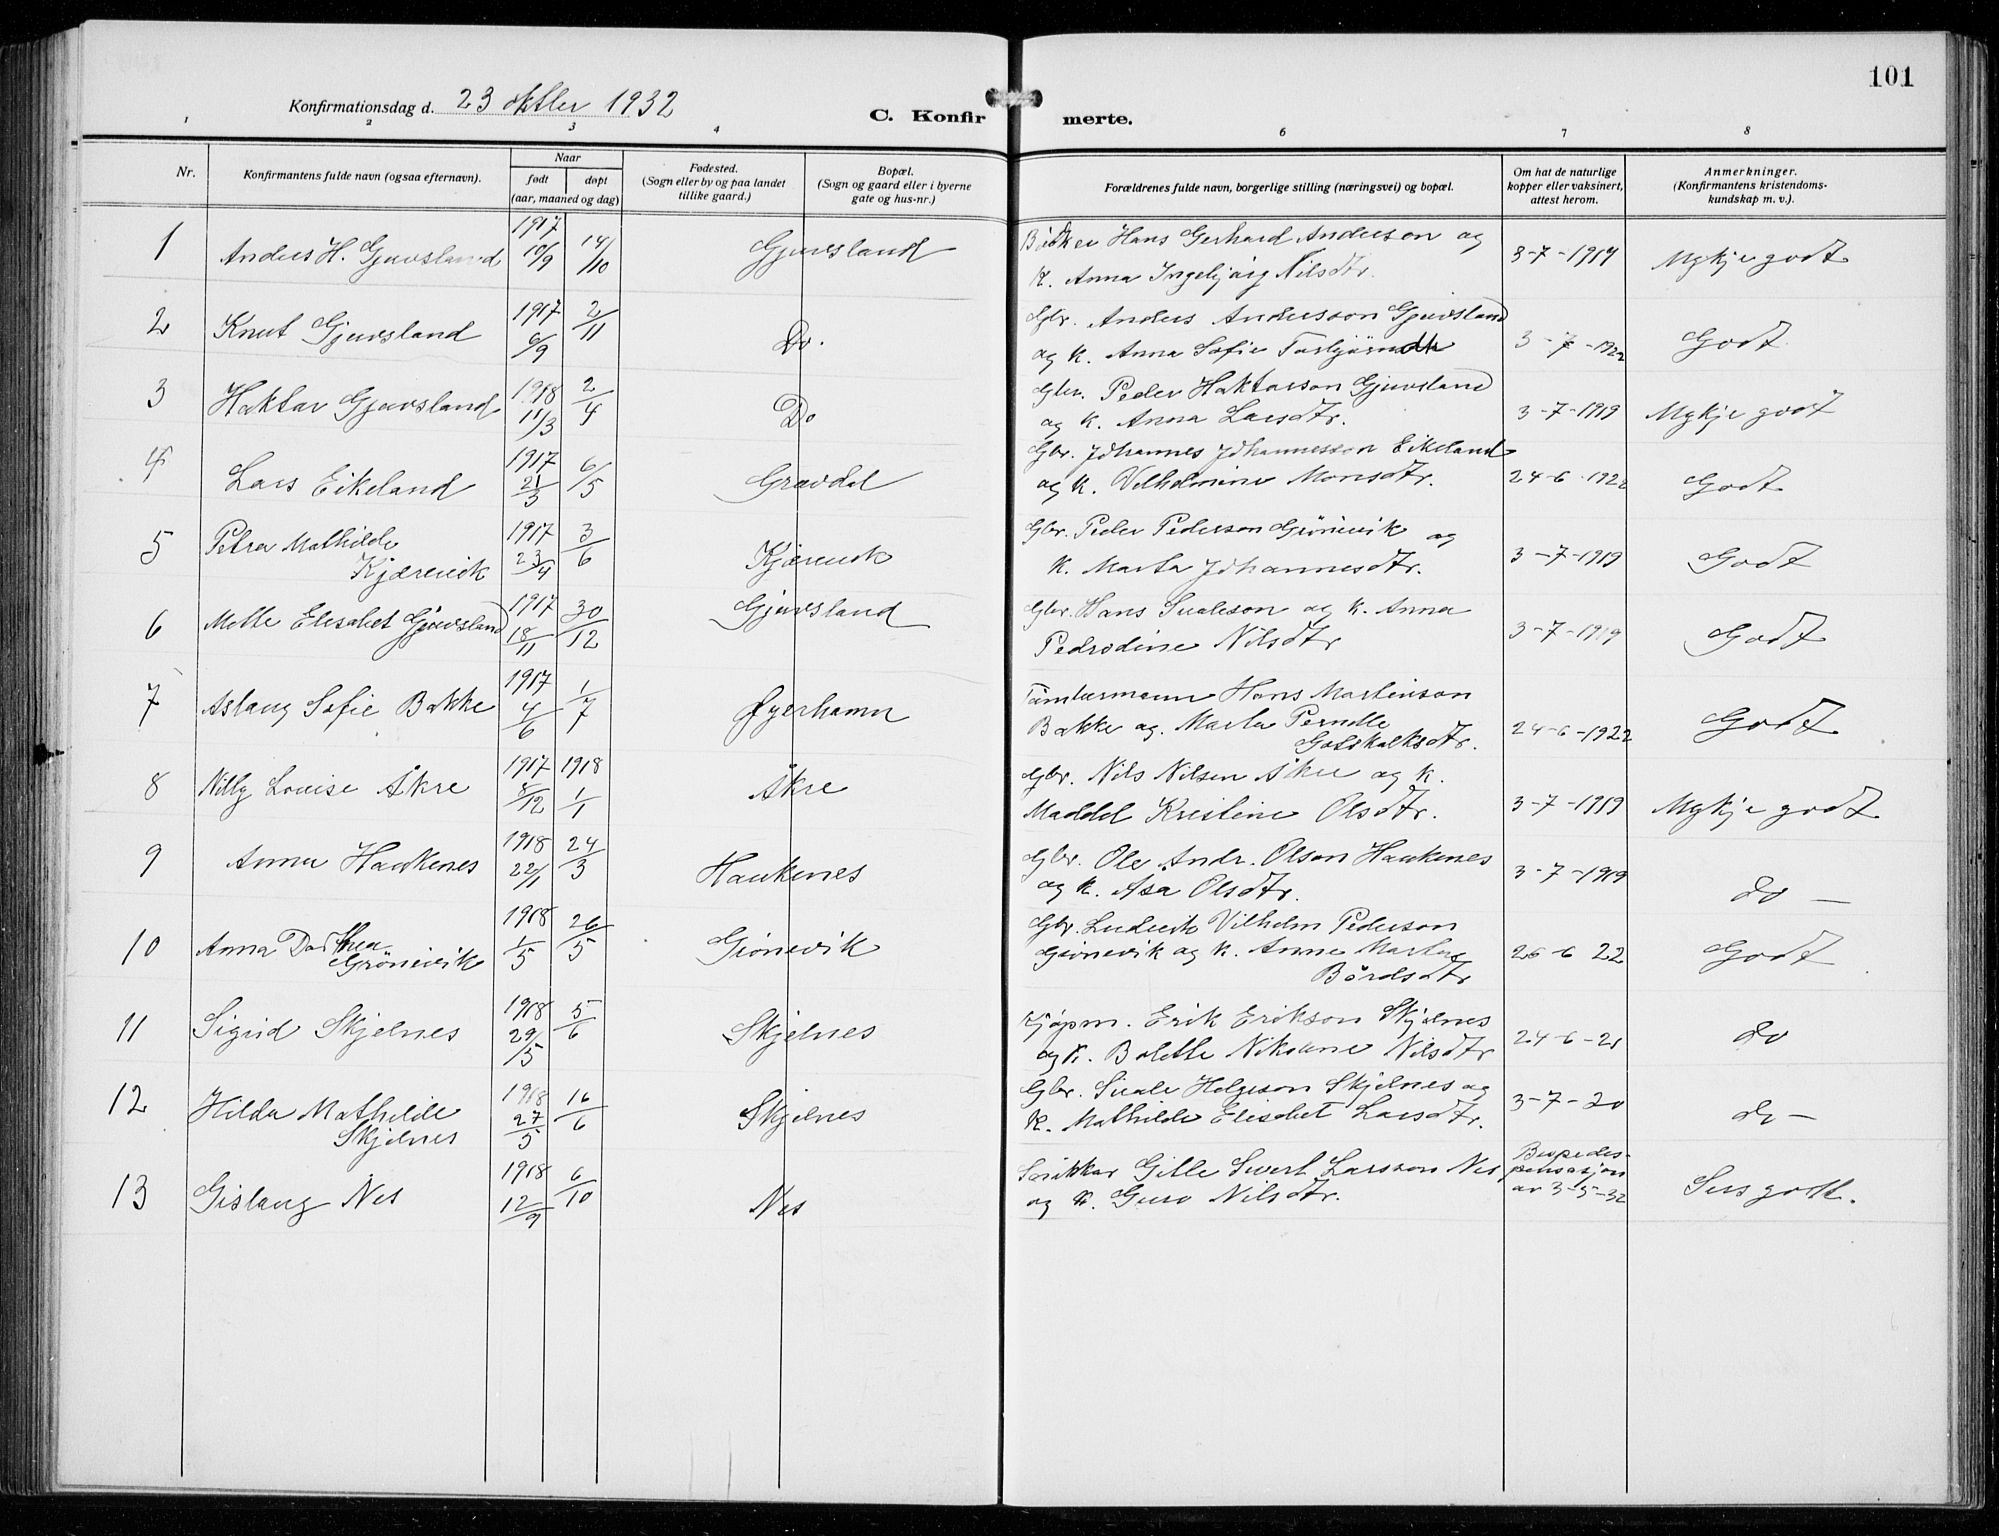 101
Konfirmationsdag d. 23 oktber 1932
C. Konfirmerte.
1 2 3 4 6 7 8
Nr.
Konfirmantens fulde navn (ogsaa efternavn).
Naar
født døpt
(aar, maaned og dag)
Fødested.
(Sogn eller by og paa landet
tillike gaard.)
Bopæl.
(Sogn og gaard eller i byerne
gate og hus-nr.)
Forældrenes fulde navn, borgerlige stilling (næringsvei) og bopæl.
Om hat de naturlige
kopper eller vaksinert,
attest herom.
Anmerkninger.
(Konfirmantens kristendoms-
kundskap m. v.).
1917
1 Anders H. Gjuvsland 10/9 14/10 Gjuvsland
Hans Gerhard Anderson og
K. Anna Ingebjørg Nilsdtr.
3-7-1919 Mykje godt
1917
2 Knut Gjuvsland 6/9 2/11 Do.
Gbr. Anders Andersson Gjuvsland
og K. Anna Sofie Torbjørnsdtr
3-7-1922 Godt
1918
3 Haktar Gjuvsland 11/3 2/4 Do
Gbr. Peder Haktarson Gjuvsland
og K. Anna Larsdtr.
3-7-1919 Mykje godt
1917
4 Lars Eikeland 21/3 6/5 Gravdal
Gbr. Johannes Johannesson Eikeland
og K. Vilhelmine Monsdtr.
24-6-1922 Godt
1917
5 Petra Mathilde
Kjærevik 23/4 3/6 Kjærevik
Gbr. Peder Pederson Grönevik og
K. Marta Johannesdtr.
3-7-1919 Godt
1917
6 Mette Elisabet Gjuvsland 18/11 30/12 Gjuvsland
Gbr. Hans Sualeson og K. Anna
Pedrodine Nilsdtr
3-7-1919 Godt
1917
7 Aslaug Sofie Bakke 4/6 1/7 Øyerhamn
Tömbermann Hans Martinson
Bakke og Marta Pernille
Gotskalksdtr.
24-6-1922 Godt
1917 1918
8 Nilly Louise Åkre 8/12 1/1 Åkre
Gbr. Nils Nilsen Åkre og K.
Maddel Kristine Olsdtr.
3-7-1919 Mykje godt
1918
9 Anna Haukenes 22/1 24/3 Haukenes
Gbr. Ole Andr. Olson Haukenes
og K. Åsa Olsdtr.
3-7-1919 do -
1918
10 Anna Dorthea
Grönevik 1/5 26/5 Grönevik
Gbr. Ludvik Vilhelm Pederson
Grönevik og K. Anne Marta
Bårdsdtr
26-6 22 Godt
1918
11 Sigrid Skjelnes 29/5 5/6 Skjelnes
Kjöpm. Erik Erikson Skjelnes
og K. Bolette Nikoline Nilsdtr
24-6-21 do
1918
12 Hilda Mathilde
Skjelnes 27/5 16/6 Skjelnes
Gbr. Suale Helgeson Skjelnes og
K. Mathilde Elisabet Larsdtr.
3-7-20 do -
1918
13 Gislaug Nes 12/9 6/10 Nes
Snikkar Gitle Sivert Larsson Nes
og K. Guro Nilsdtr.
Bispedis-
pensasjon
av 3-5-32
Sers godt.